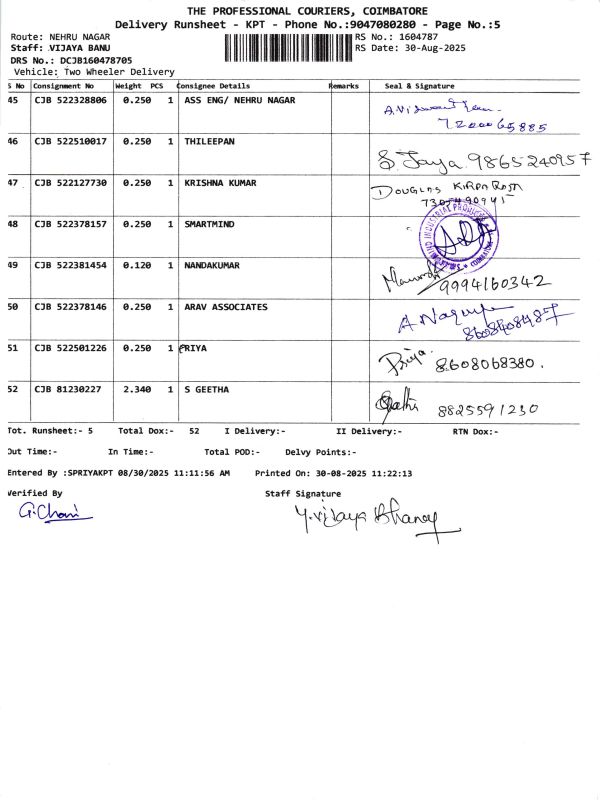 THE PROFESSIONAL COURIERS, COIMBATORE
Delivery Runsheet - KPT - Phone No.:9047080280 - Page No.:5
Route: NEHRU NAGAR
RS No.: 1604787
Staff: VIJAYA BANU
RS Date: 30-Aug-2025
DRS No.: DCJB160478705
Vehicle: Two Wheeler Delivery
S No Consignment No Weight PCS Consignee Details Remarks Seal & Signature
45 CJB 522328806 0.250 1 ASS ENG/ NEHRU NAGAR
46 CJB 522510017 0.250 1 THILEEPAN
S. Jaya 9865240957
47 CJB 522127730 0.250 1 KRISHNA KUMAR
DOUGLAS
48 CJB 522378157 0.250 1 SMARTMIND
49 CJB 522381454 0.120 1 NANDAKUMAR
9994160342
50 CJB 522378146 0.250 1 ARAV ASSOCIATES
51 CJB 522501226 0.250 1 PRIYA
Priya. 8608068380.
52 CJB 81230227 2.340 1 S GEETHA
8825591230
Tot. Runsheet:- 5 Total Dox:- 52 I Delivery:- II Delivery:- RTN Dox:-
Out Time:- In Time:- Total POD:- Delvy Points:-
Entered By :SPRIYAKPT 08/30/2025 11:11:56 AM Printed On: 30-08-2025 11:22:13
Verified By Staff Signature